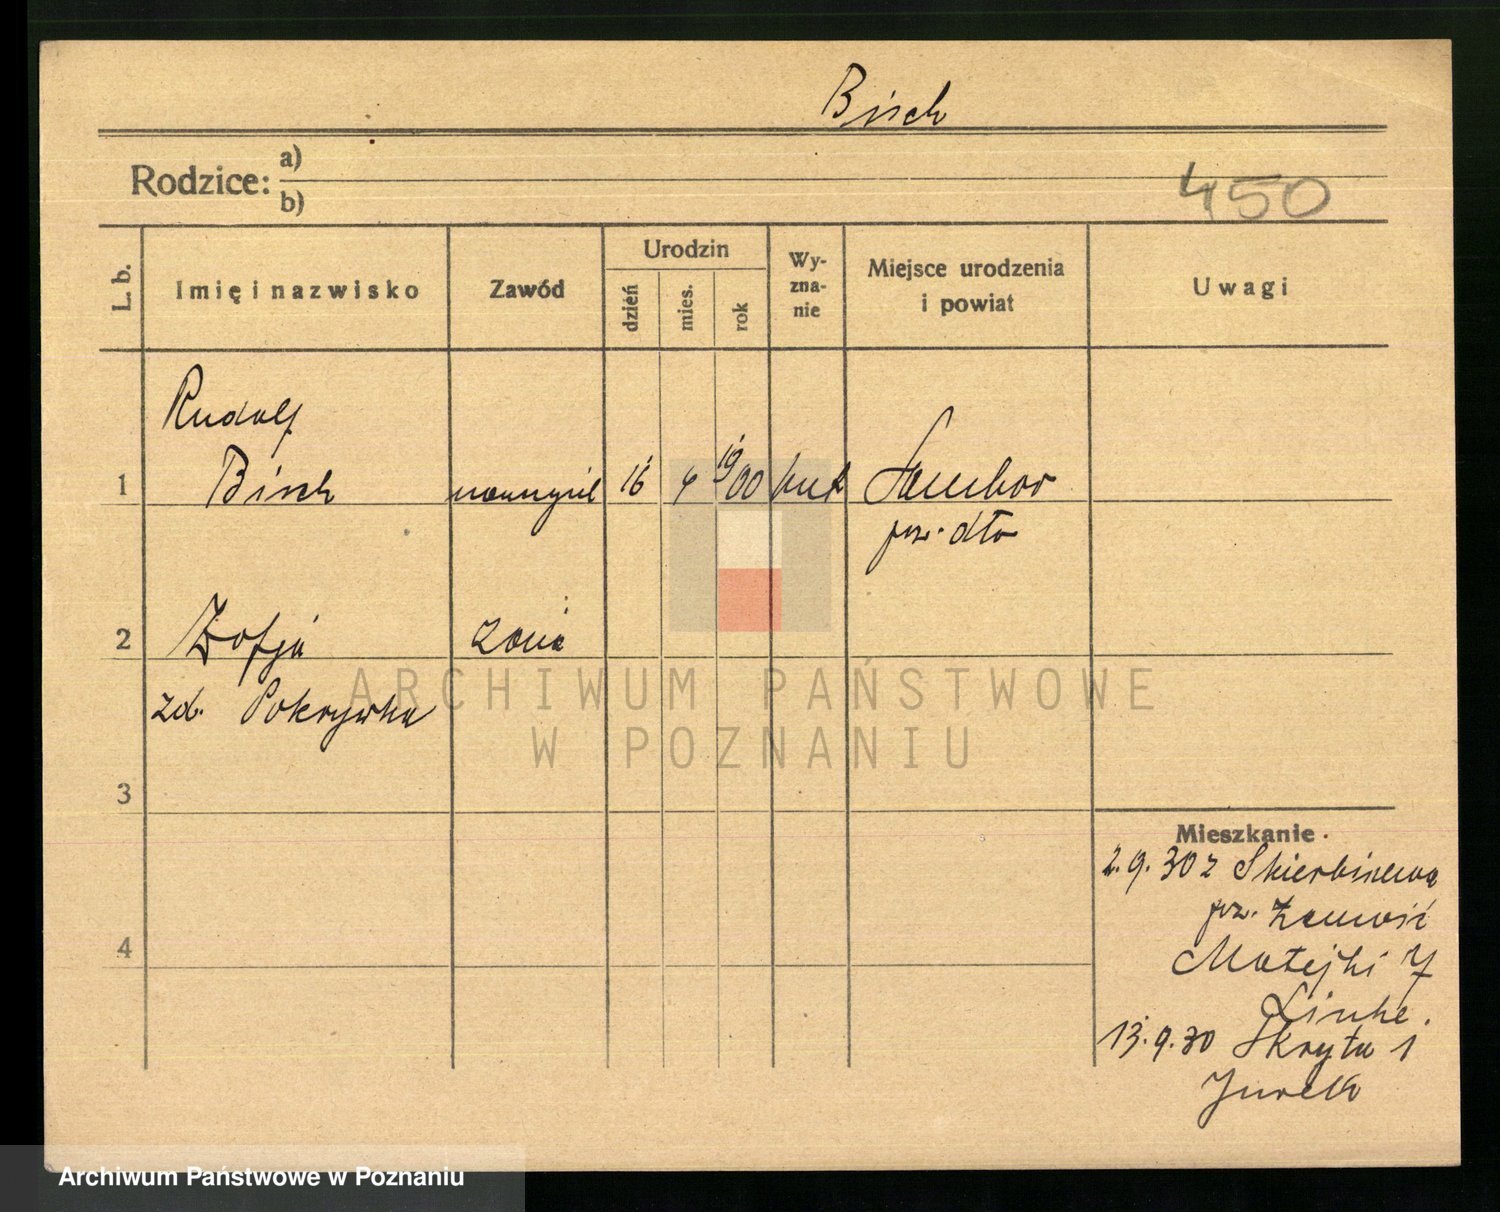 Bisch
Rodzice: a)
b)
450
L. b.
Imię i nazwisko
Zawód
Urodzin
dzień
mies.
rok
Wy-
zna-
nie
Miejsce urodzenia
i powiat
Uwagi
Rudolf
1 Bisch 16 4 1900 Sambor
pow. dto
2 Zofja żona
zd. Pokrywka
3
4
Mieszkanie
2.9.30 z Skierbieszowa
pow. Zamość
Matejki 7
Linke.
13.9.30 Skryta 1
Jurek
ARCHIWUM PAŃSTWOWE
W POZNANIU
Archiwum Państwowe w Poznaniu